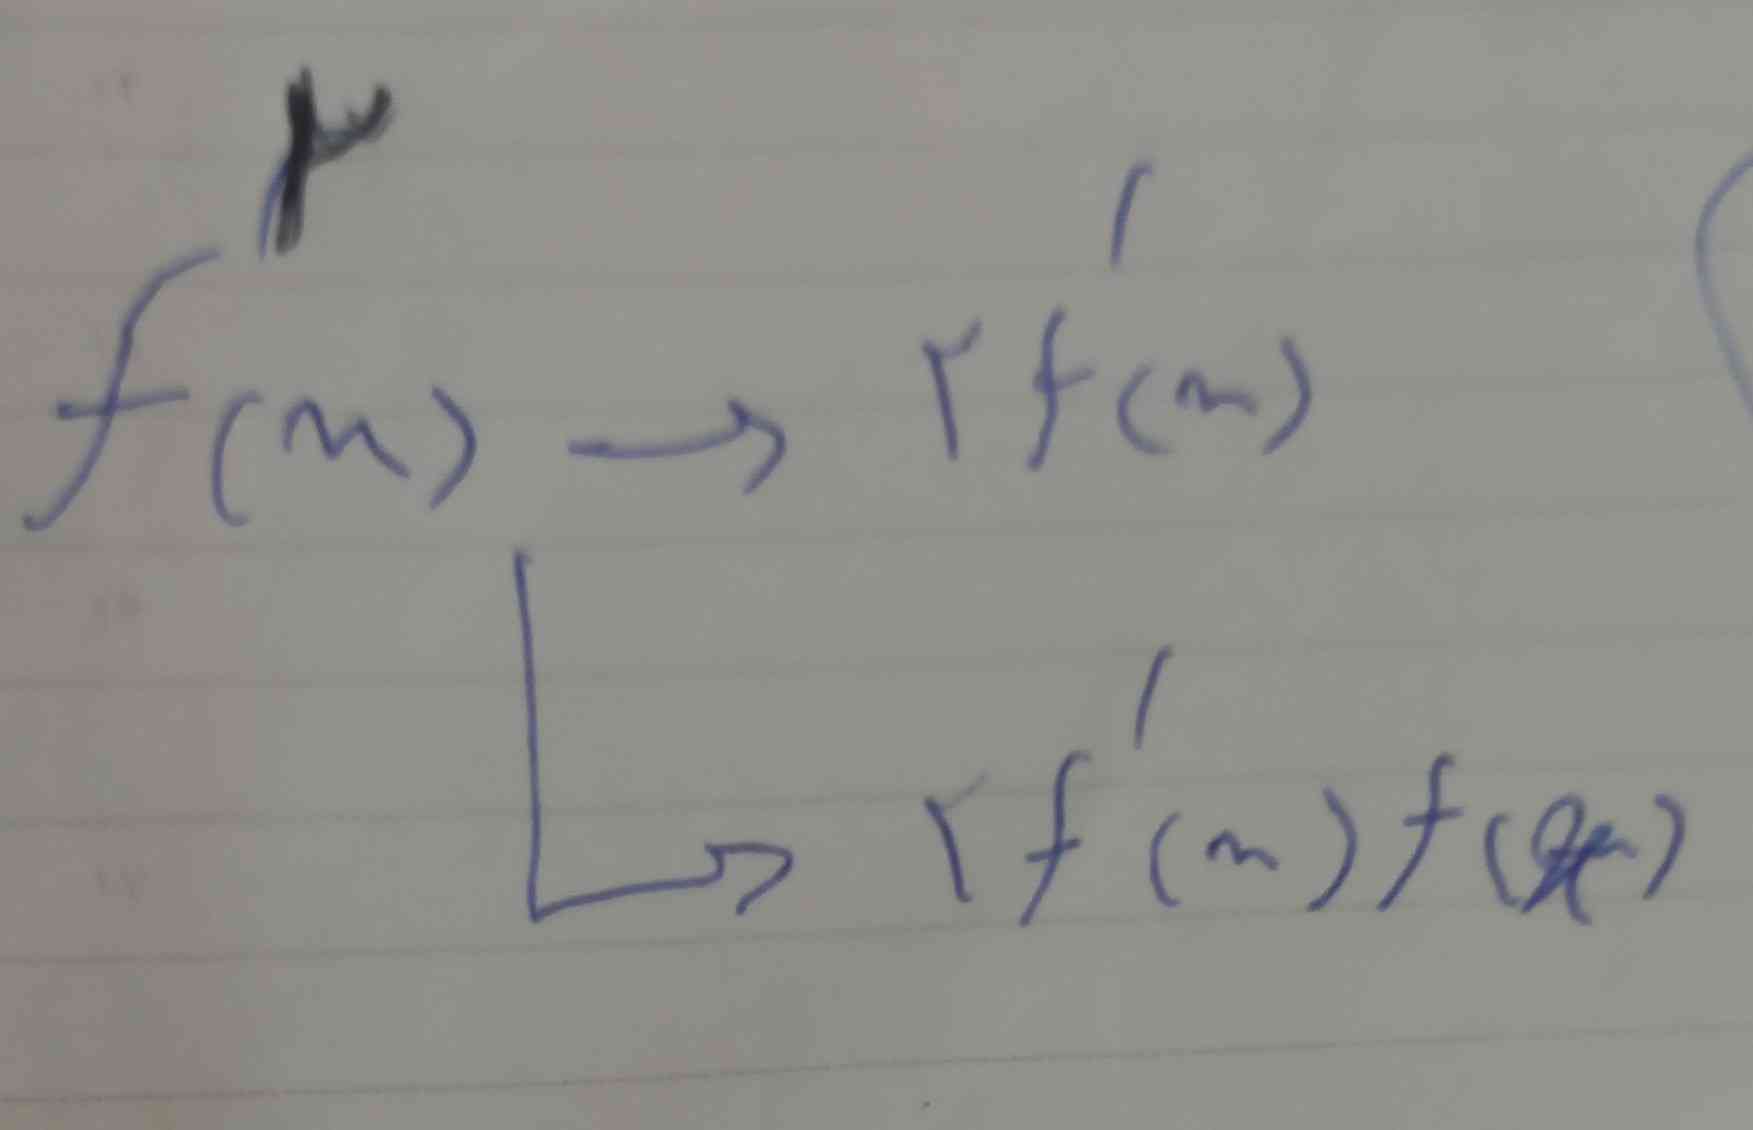 f²(x) → ۲f'(x)
↳ ۲f'(x)f(x)